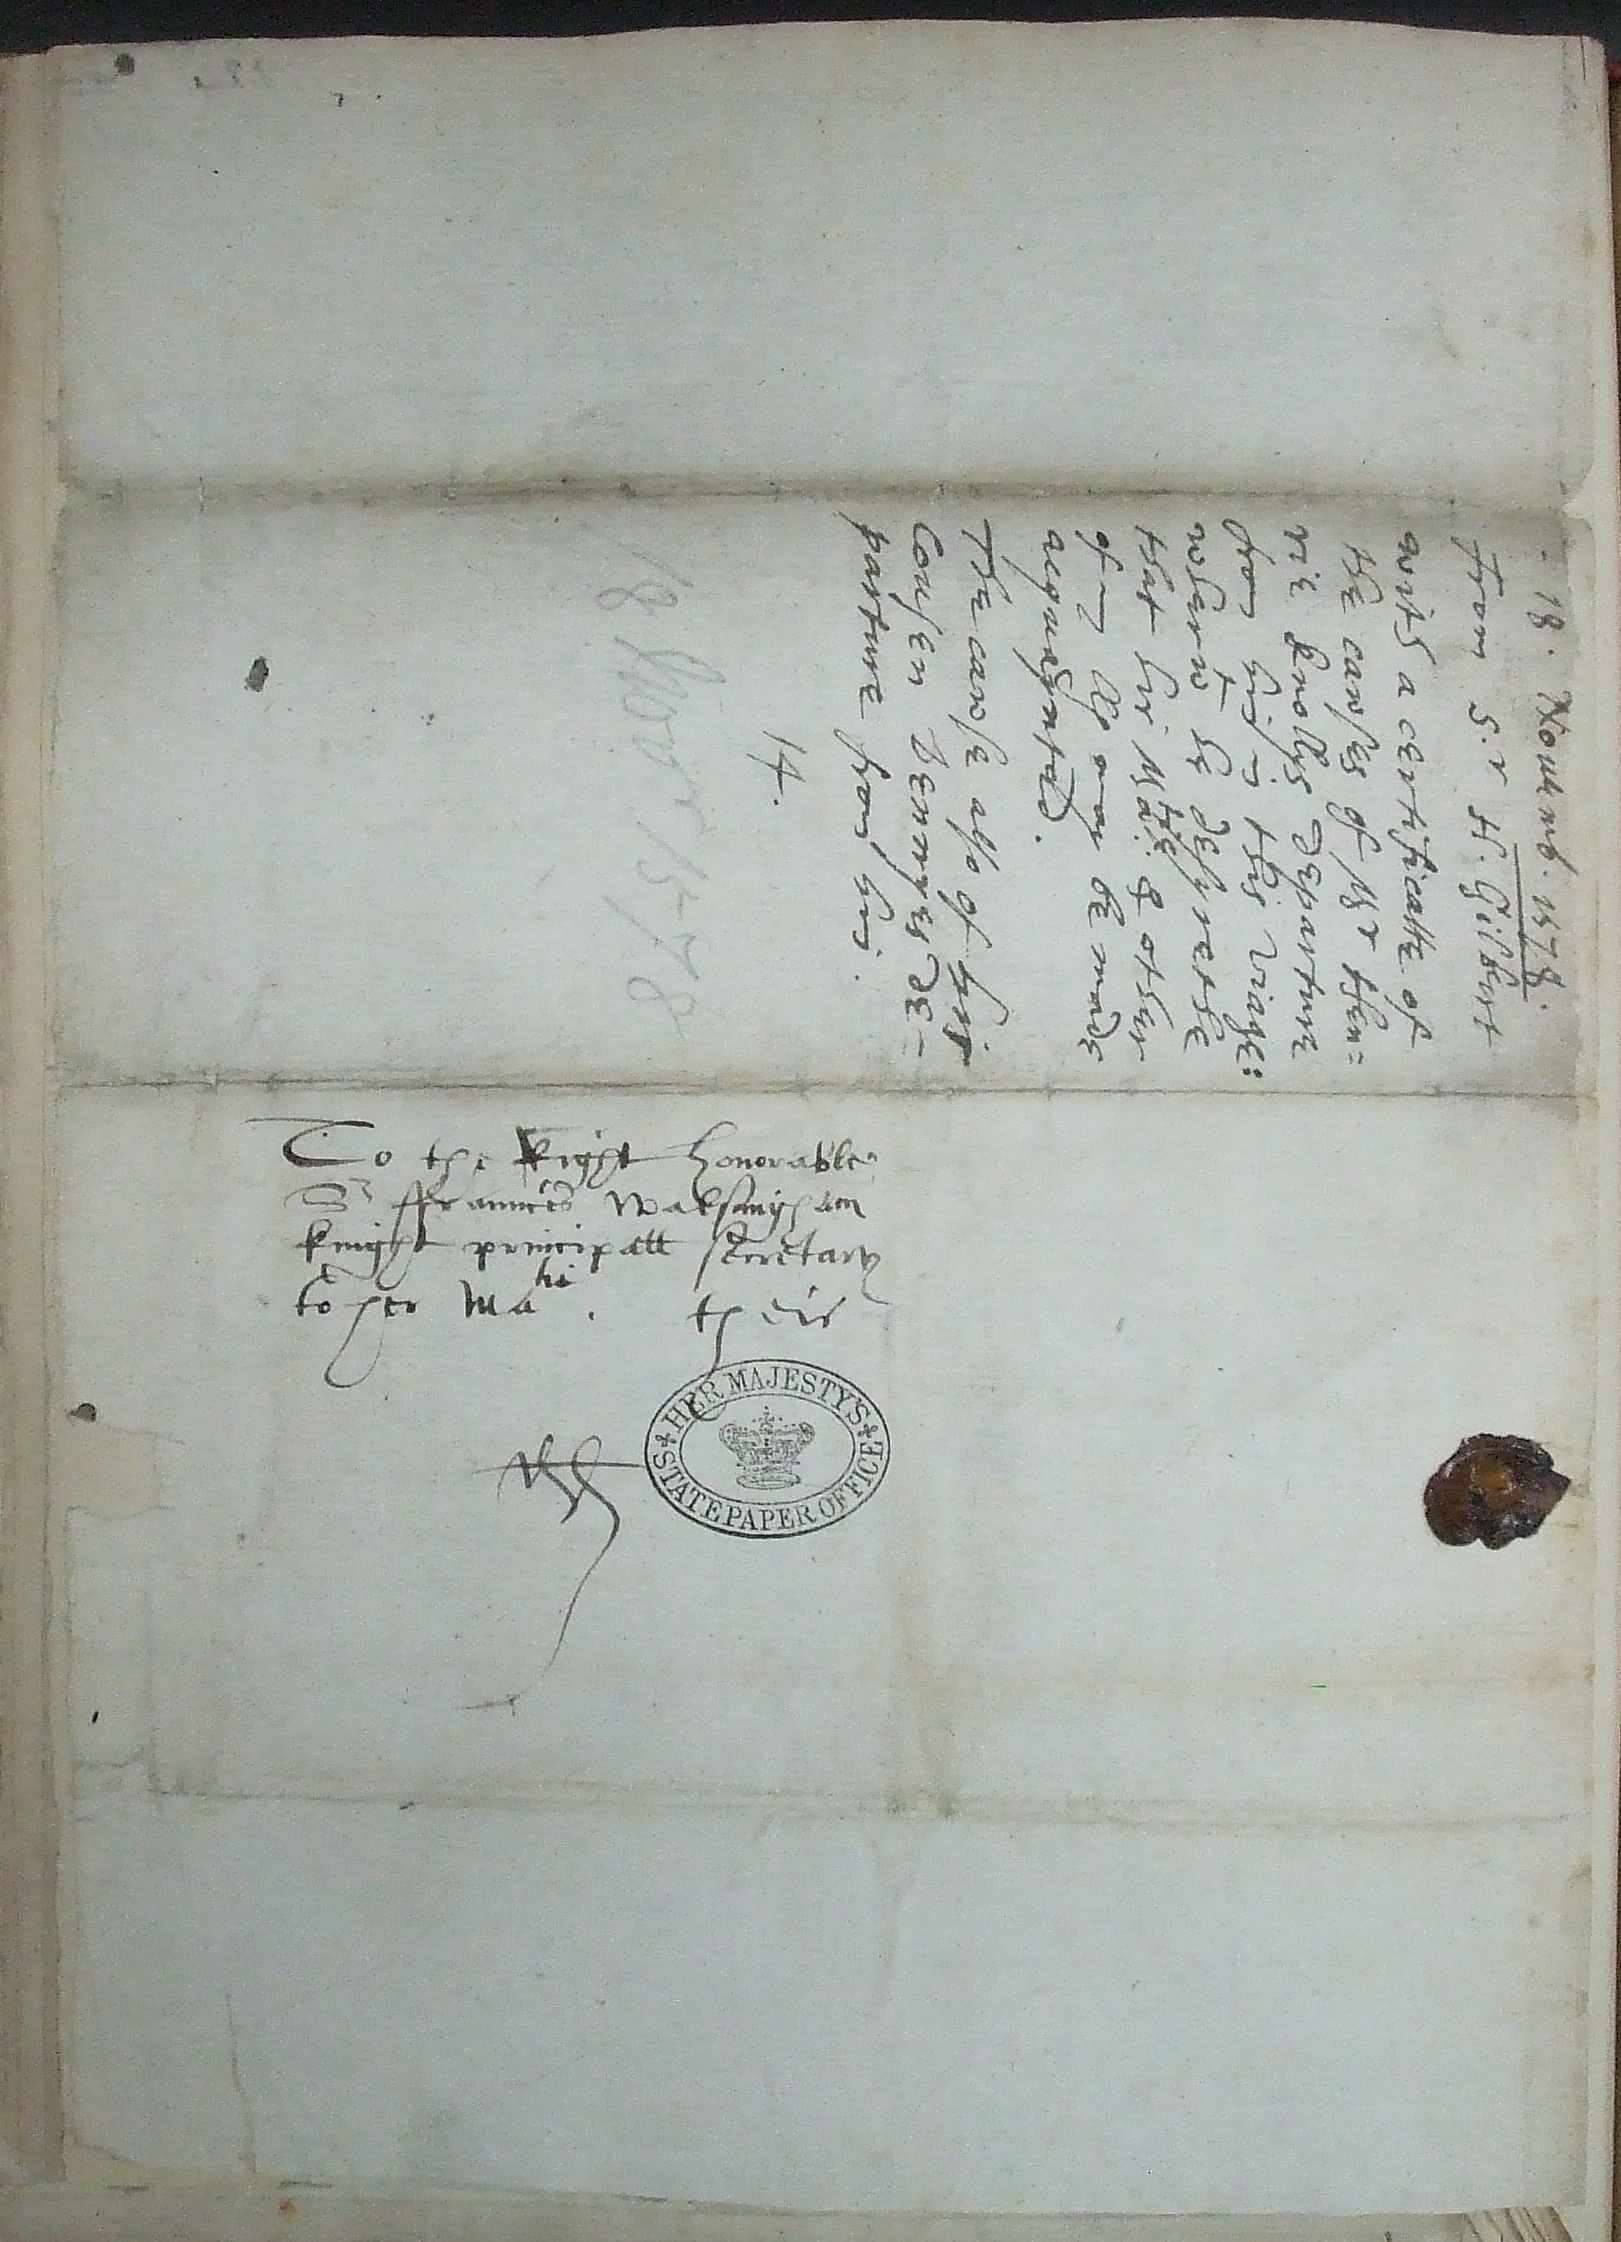 . 18. Nouemb. 1578.
From S.r H. Gilbert
with a certificatte of
the causes of Mr Hen=
rie Knollys departure
from him in this viage:
wherwt he desyrethe
that her Ma.tie & other
of my LL. may be made
acquaynted.
The cawse also of his
Cousen Dennyes de-
parture from him.
14.
18 Nov. 1578
To the Right honorable
Sr ffrauncis Walsingham
knight principall secretary
to her Matie. theis
HER MAJESTY'S
STATE PAPER OFFICE